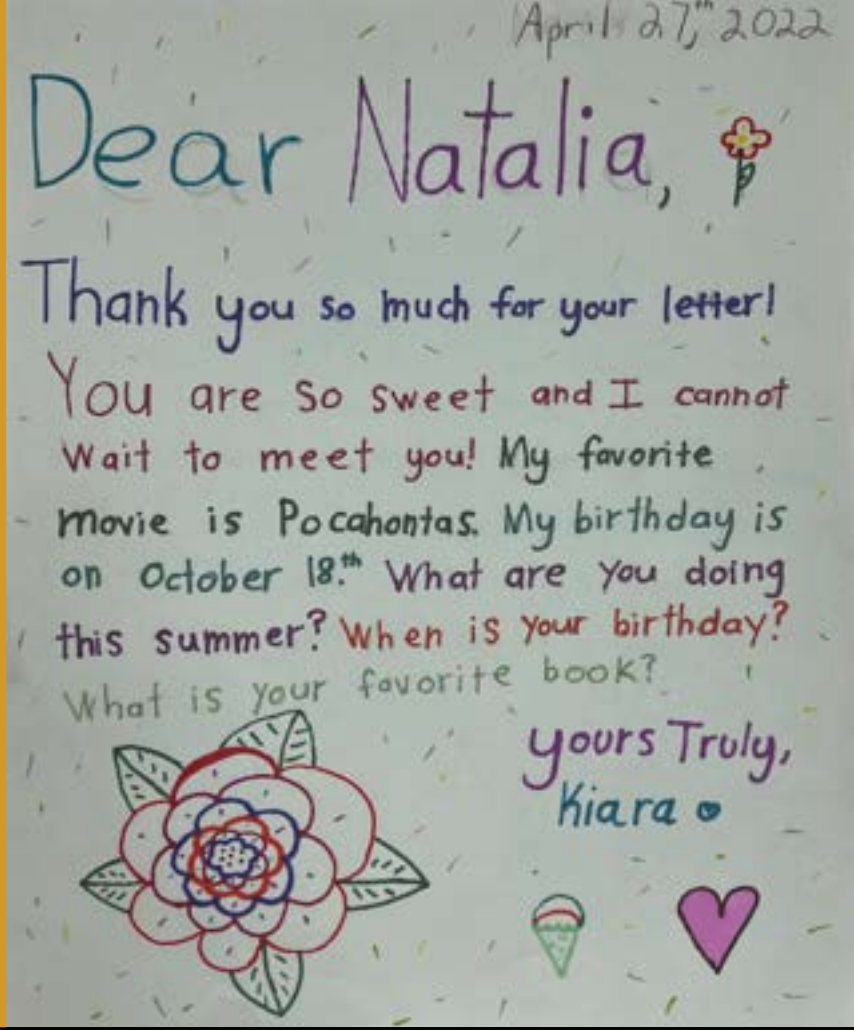 April 27,th 2022
Dear Natalia,
Thank you so much for your letter!
You are so sweet and I cannot
wait to meet you! My favorite
movie is Pocahontas. My birthday is
on October 18.th What are you doing
this summer? When is your birthday?
What is your favorite book?
yours Truly,
Kiara